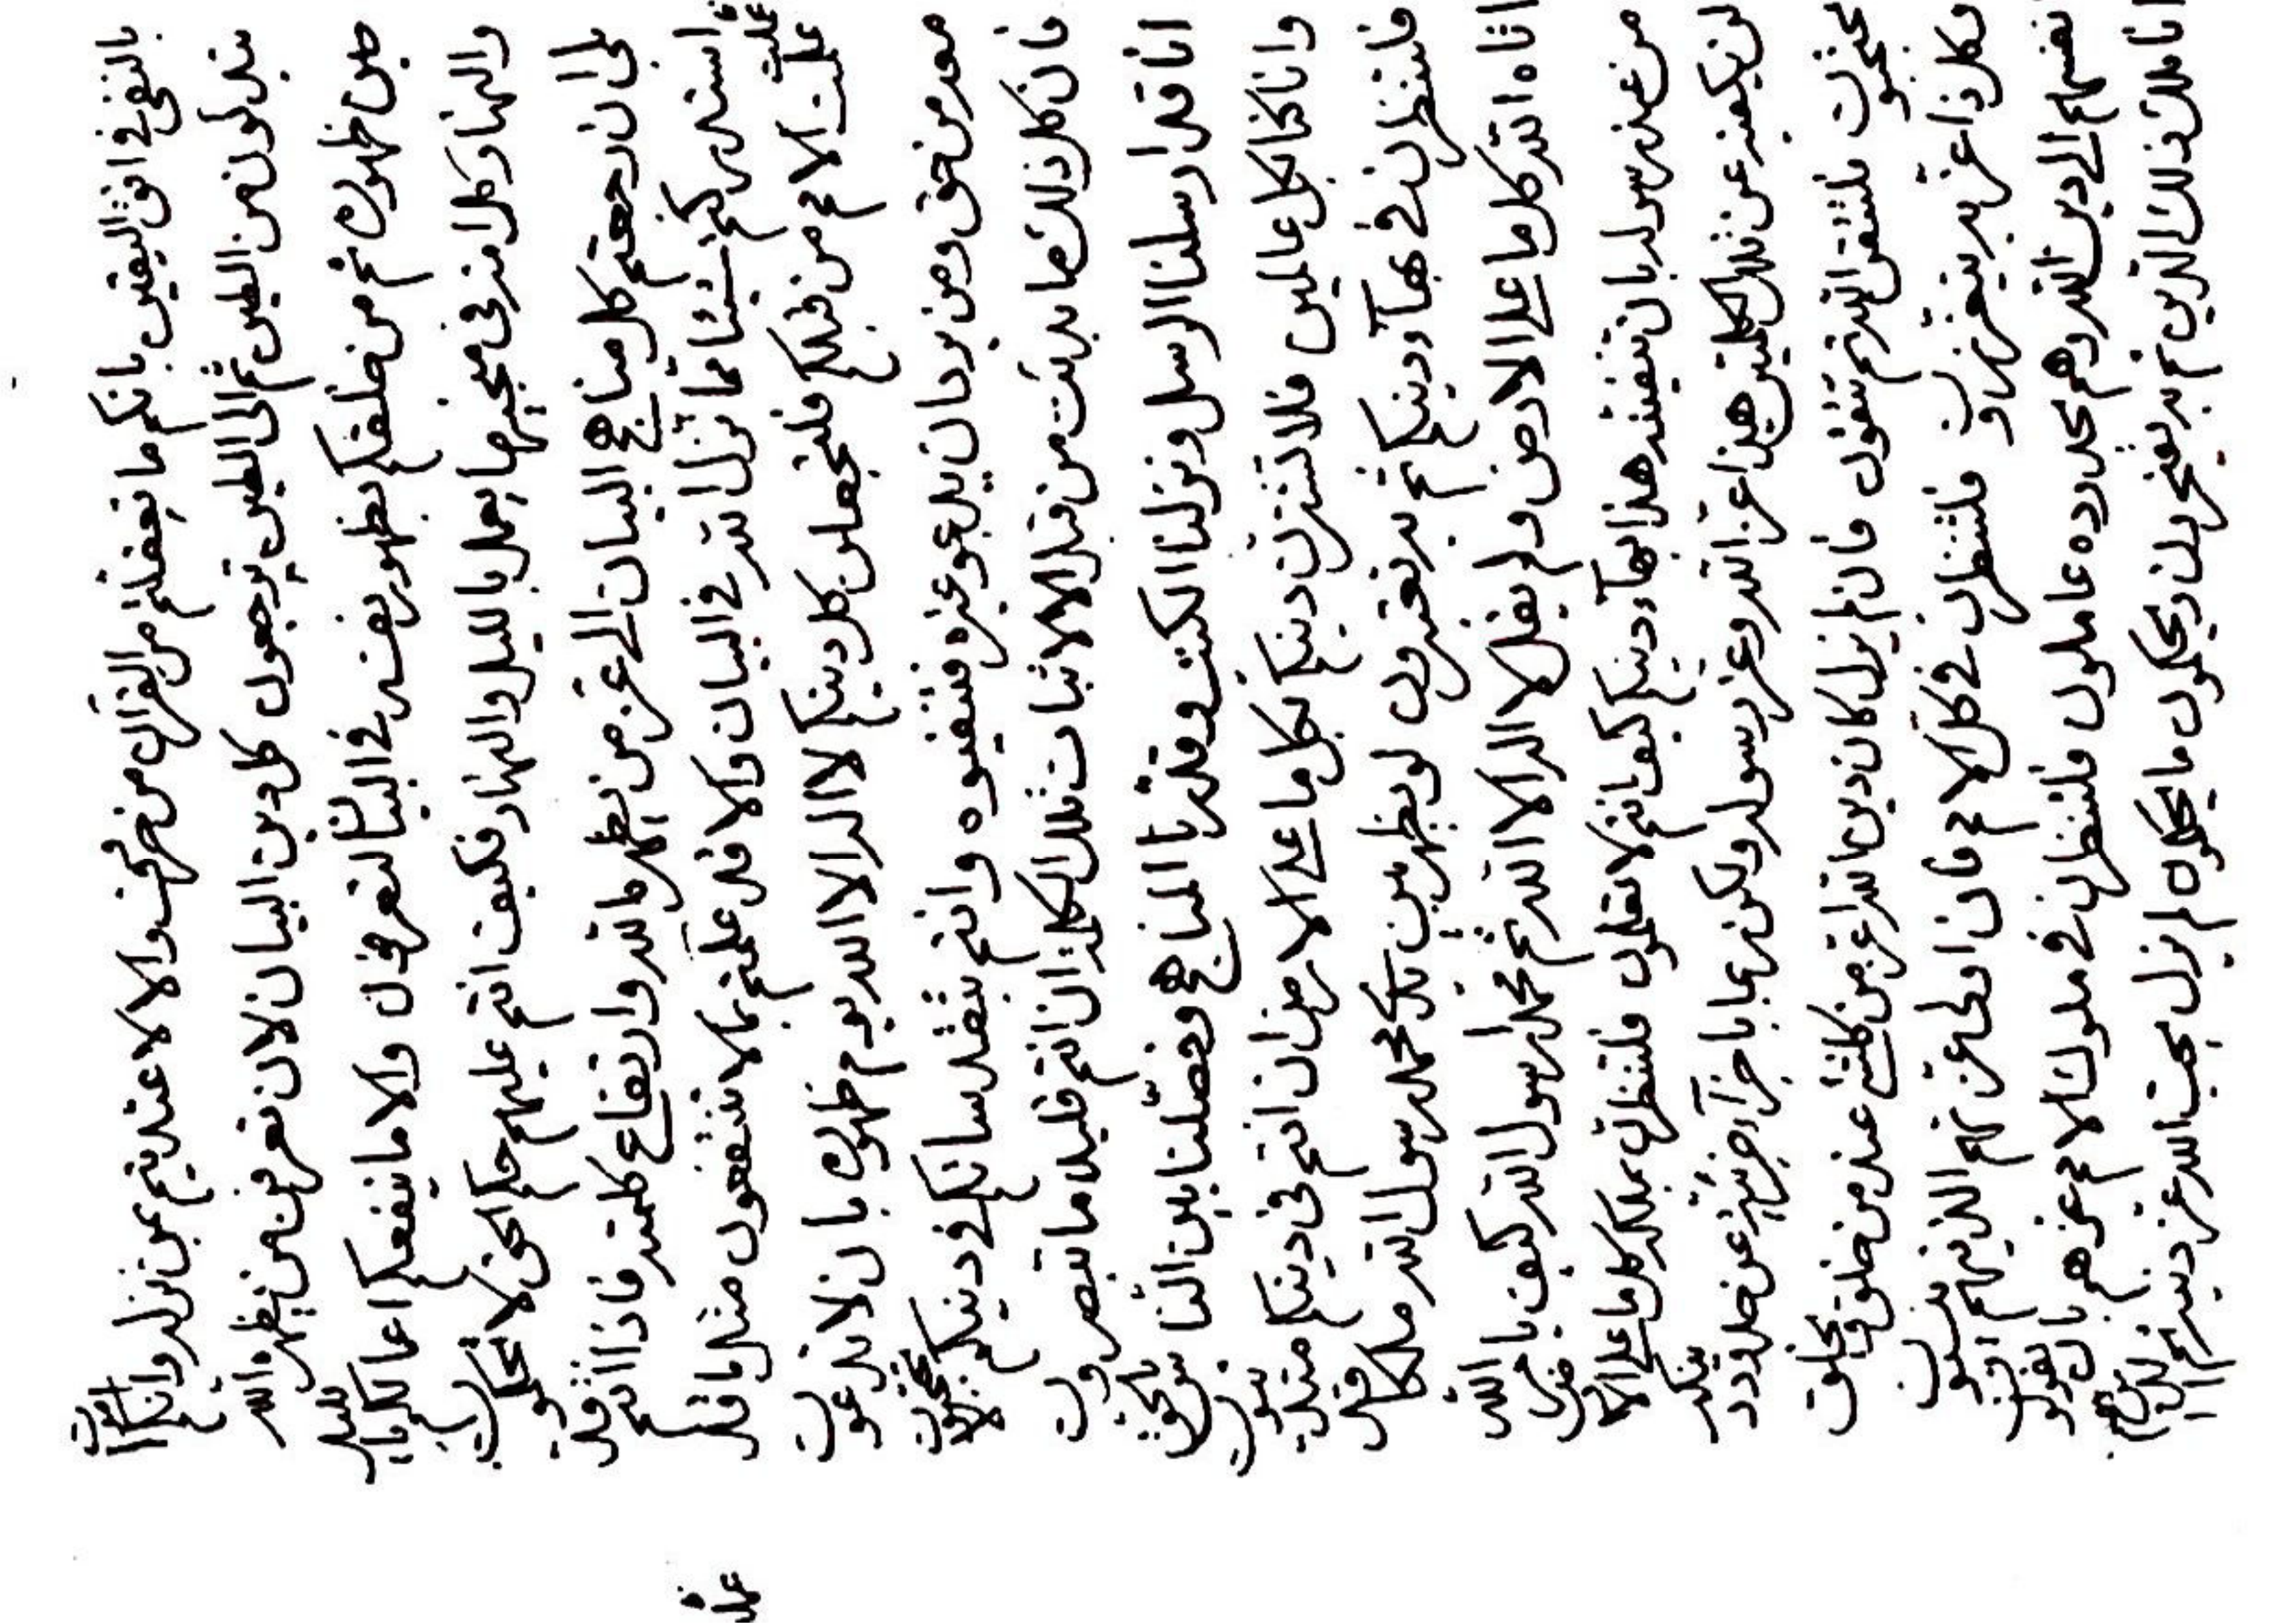 بالنفى فى افق اليقين بانكم ما تعقلتم من القرآن من حرف والا لاعتديتم بمن نزله وانكم
تبدلون من الطين ثم الى الطين ترجعون كل دين البيان لان تعرفن من يظهره الله
حين ظهوره ثم من خلقكم بظهور نفسه فى البيان والا ما ينفعكم اعمالكم
والنهار وكل امة فى محبتها يعمل بالليل والنهار فكيف انتم عليهم حكم الحق لا تحكمون
بلى ان رجعتم كل مناهج البيان الى عز من يظهره الله وارتفاع كلمته فاذا انتم قد
استدركتم شيئا مما نزل الله فى البيان والا قد عملتم بما لا تنتفعون مثل ما قد
عملت الامم من قبلكم فلتجعلن كل دينكم لا اله الا الله يوم ظهوره بان لا تدعون
معه من حق ومن يدعو غيره فتنفيوه وانتم بقدر فى دينكم لا تحتجبون
فان كل ذلك ما بدئت من قبل الا لاثبات تلك الكلمة ان انتم قليلا ما تبصرون
انا قد ارسلنا الرسل ونزلنا الكتب وقدرنا المناهج وفصلنا بين الناس بالحق
وانا كنا بكل عالمين فلا تشترن دينكم بكل ما على الارض ان انتم فى دينكم متدينون
فلتنظرن فى بهاء دينكم ثم به تفتخرون لو يظهرن محمد رسول الله ملكا قد
اتاه الله كل ما على الارض ولم يقل لا اله الا الله ثم محمد رسول الله كيف يامر الله
من عند رسوله بان تنفيه هذا بهاء دينكم كيف انتم لا تعقلون فلتنظرن بملك كل ما على الارض
لن يكفيه عن تلك الكلمتين هذا عز الله وعز رسوله ولكن عن حدود
تحتجبون فلتتقن الله ثم تتقون فان لم يزل كان دين الله اعز من كل شئ عند من خلق ويخلق
وكل ذا عز به يتعززون فلتنظرن فى كل الامم فان اولى عزتهم
نفسهم الى دين الله وهم بحدوده عاملون فلتنظرن فى ملوك الامم عزهم بان يقولون
انا ملك ذلك الدين ثم به يفتخرون ويحكمون ما يحكمون لم يزل يحب الله عز دينه ثم